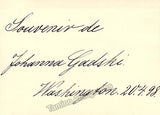 Souvenir de
Johanna Gadski
Washington 20.4.98